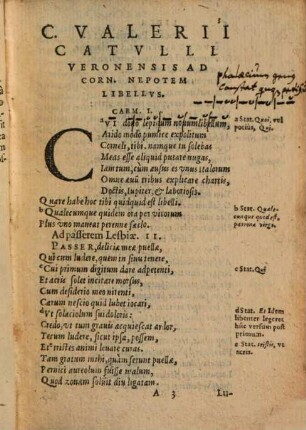 C. VALERII
CATVLLI
VERONENSIS AD
CORN. NEPOTEM
LIBELLVS.
CARM. I.
CVI dono lepidum nouum libellum,
Arido modò pumice expolitum
Corneli, tibi. namque tu solebas
Meas esse aliquid putare nugas,
Iam tum, cùm ausus es vnus Italorum
Omne æuũ tribus explicare chartis,
Doctis, Iupiter, & laboriosis.
Quare habe hoc tibi quidquid est libelli.
b Qualecumque quidem ora per virorum
Plus vno maneat perenne sæclo.
Ad passerem Lesbiæ. II.
PASSER, deliciæ meæ puellæ,
Qui cum ludere, quem in sinu tenere,
c Cui primum digitum dare adpetenti,
Et acris solet incitare morsus,
Cum desiderio meo nitenti,
Carum nescio quid lubet iocari,
d Vt solaciolum sui doloris:
Credo, vt tum grauis acquiescat ardor,
Tecum ludere, sicut ipsa, possem,
Et e tristes animi leuare curas.
Tam gratum mihi, quàm ferunt puellæ,
Pernici aureolum fuisse malum,
Quod zonam soluit diu ligatam.
A 3 Lu-
a Stat. Quoi, vel
potius, Qui.
b Stat. Quale-
cumque quod est,
patrona virgo.
c Stat. Quoi
d Stat. Et Idem
libenter legeret
hũc versum post
primum.
e Stat. tristis, ve
neris.